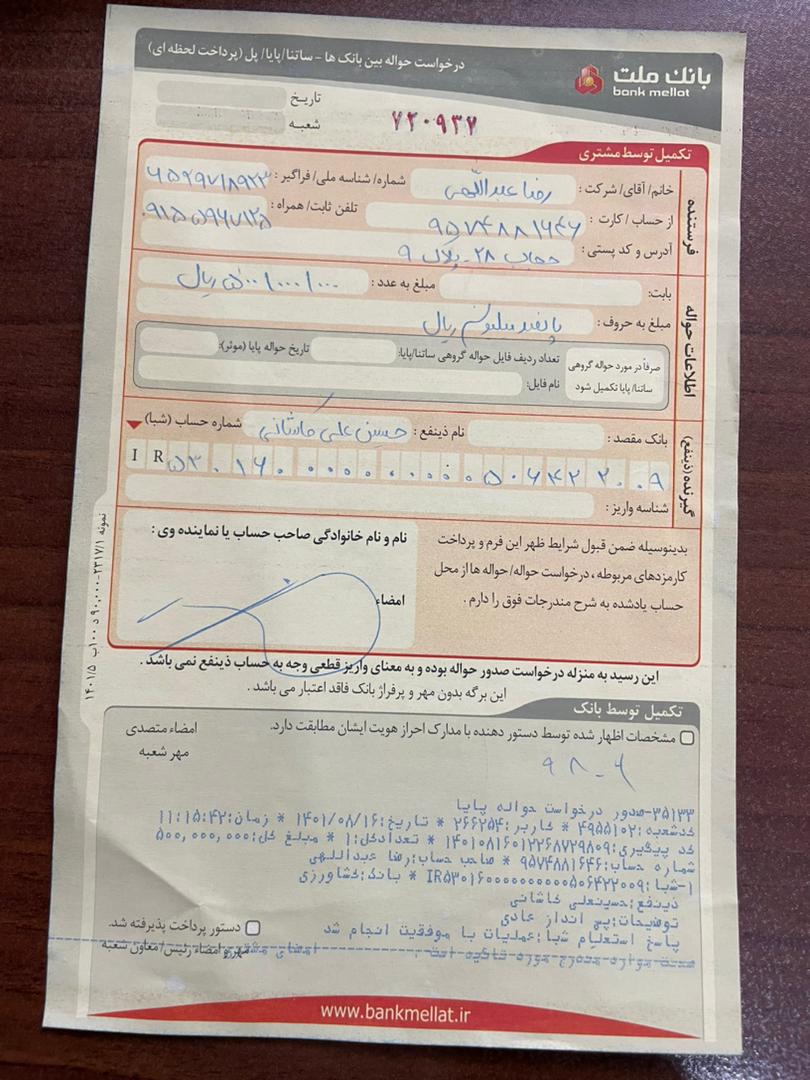 درخواست حواله بین بانک ها - ساتنا/پایا/ پل (پرداخت لحظه ای)
بانک ملت
bank mellat
تاریخ
شعبه
۷۲۰۹۳۷
تکمیل توسط مشتری
فرستنده
خانم/ آقای/ شرکت : رضا عبداللهی شماره/ شناسه ملی/ فراگیر :
از حساب / کارت : ۹۵۷۴۸۸۱۶۴۶ تلفن ثابت/ همراه : ۰۹۱۵۵۹۶۷۱۲۵
آدرس و کد پستی : حجاب ۲۸ - پلاک ۹
اطلاعات حواله
بابت: مبلغ به عدد : ۵۰۰/۰۰۰/۰۰۰ ریال
مبلغ به حروف : پانصد میلیون ریال
صرفاً در مورد حواله گروهی ساتنا/ پایا تکمیل شود
تعداد ردیف فایل حواله گروهی ساتنا/پایا: تاریخ حواله پایا (موثر):
نام فایل:
گیرنده (ذینفع)
بانک مقصد : نام ذینفع : حسین علی کاشانی شماره حساب (شبا)
I R ۵۳۰۱۶۰۰۰۰۰۰۰۰۰۰۵۰۶۴۲۲۰۰۹
شناسه واریز :
بدینوسیله ضمن قبول شرایط ظهر این فرم و پرداخت
کارمزدهای مربوطه ، درخواست حواله/ حواله ها از محل
حساب یادشده به شرح مندرجات فوق را دارم .
نام و نام خانوادگی صاحب حساب یا نماینده وی :
امضاء
این رسید به منزله درخواست صدور حواله بوده و به معنای واریز قطعی وجه به حساب ذینفع نمی باشد .
این برگه بدون مهر و پرفراژ بانک فاقد اعتبار می باشد .
نمونه ۲۳۱۷/۱-۹۰,۰۰۰ د ۱۰۰ب ۱۴۰۱/۵
تکمیل توسط بانک
مشخصات اظهار شده توسط دستور دهنده با مدارک احراز هویت ایشان مطابقت دارد.
امضاء متصدی
مهر شعبه
۳۵۱۳۳-صدور درخواست حواله پایا
کدشعبه:۴۹۵۵۱۰۲ * کاربر:۲۶۶۲۵۴ * تاریخ:۱۴۰۱/۰۸/۱۶ * زمان:۱۱:۱۵:۴۲
کد پیگیری:۱۴۰۱۰۸۱۶۰۱۲۲۶۸۷۲۹۸۰۹ * تعدادکل:۱ * مبلغ کل:۵۰۰,۰۰۰,۰۰۰
شماره حساب:۹۵۷۴۸۸۱۶۴۶ * صاحب حساب:رضا عبداللهی
۱-شبا:IR۵۳۰۱۶۰۰۰۰۰۰۰۰۰۰۵۰۶۴۲۲۰۰۹ * بانک:کشاورزی
ذینفع:حسینعلی کاشانی
توضیحات:پس انداز عادی
پاسخ استعلام شبا:عملیات با موفقیت انجام شد
دستور پرداخت پذیرفته شد.
مهر و امضاء رئیس/ معاون شعبه
www.bankmellat.ir